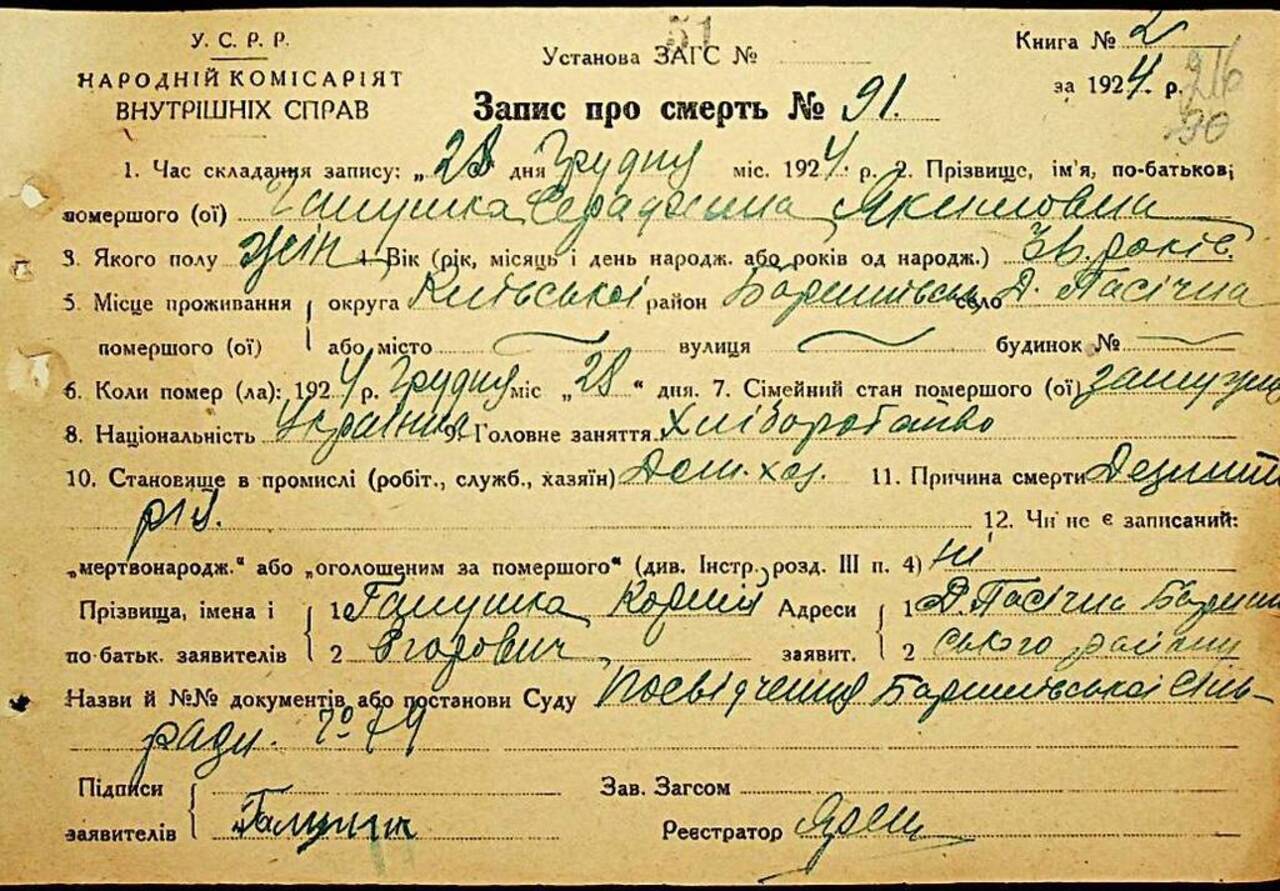 51
У. С. Р. Р.
НАРОДНІЙ КОМІСАРІЯТ
ВНУТРІШНІХ СПРАВ
Установа ЗАГС №
Книга № 2
за 1924 р.
216
30
Запис про смерть № 91.
1. Час складання запису: „28" дня Грудня міс. 1924 р. 2. Прізвище, ім'я, по-батькові
помершого (ої) Галушка Серафима Якимовна
3. Якого полу жін 4. Вік (рік, місяць і день народж. або років од народж.) 36. років.
5. Місце проживання округа Київської район Баришівськ село Д. Пасічна
помершого (ої) або місто вулиця будинок №
6. Коли помер (ла): 1924 р. Грудня міс „28" дня. 7. Сімейний стан помершого (ої) замужня
8. Національність Українка 9. Головне заняття Хліборобство
10. Становище в промислі (робіт., служб., хазяїн) Дом. хаз. 11. Причина смерти
12. Чи не є записаний:
„мертвонародж." або „оголошеним за помершого" (див. Інстр. розд. III п. 4) Ні
Прізвища, імена і 1 Галушка Корній Адреси 1 Д. Пасічна Бариш
по-батьк. заявителів 2 Єгорович заявит. 2 ського району
Назви й №№ документів або постанови Суду Посвідчення Баришівської Сіль-
ради. № 79
Підписи Зав. Загсом
заявителів Галушка Реєстратор